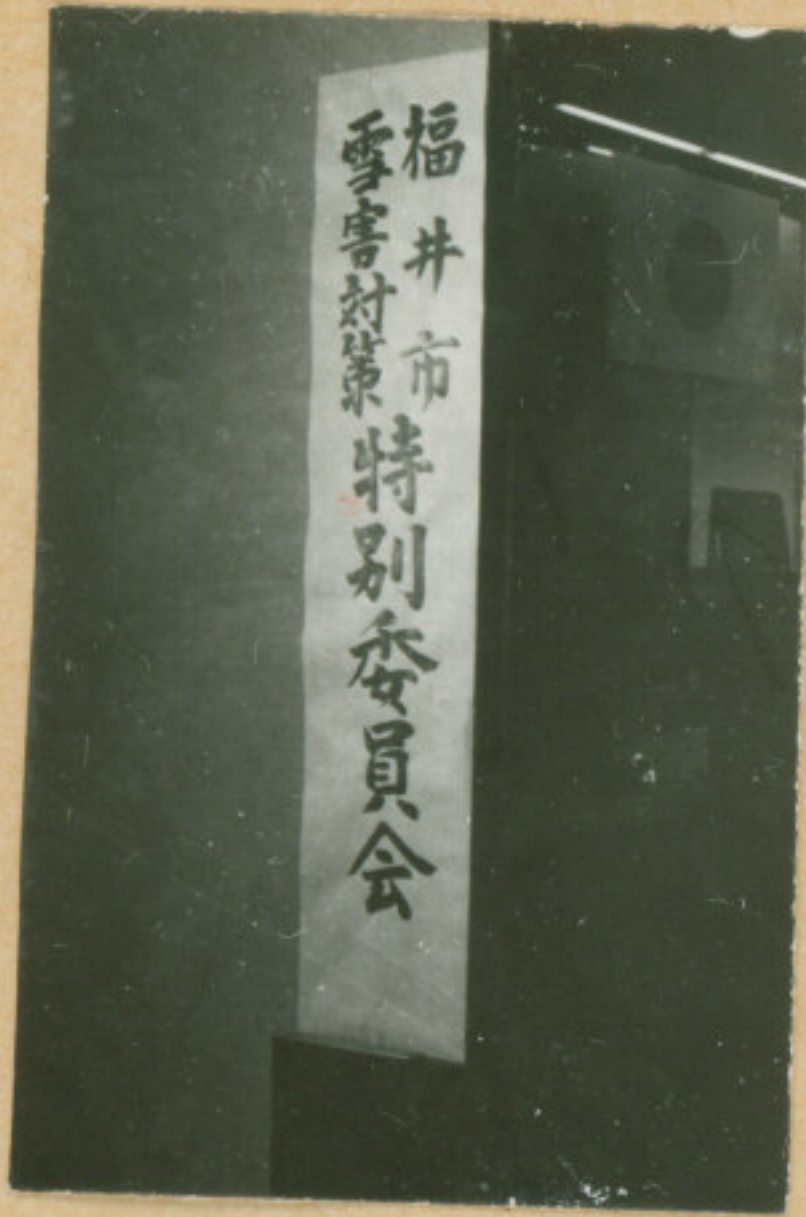 福井市
雪害対策
特別委員会